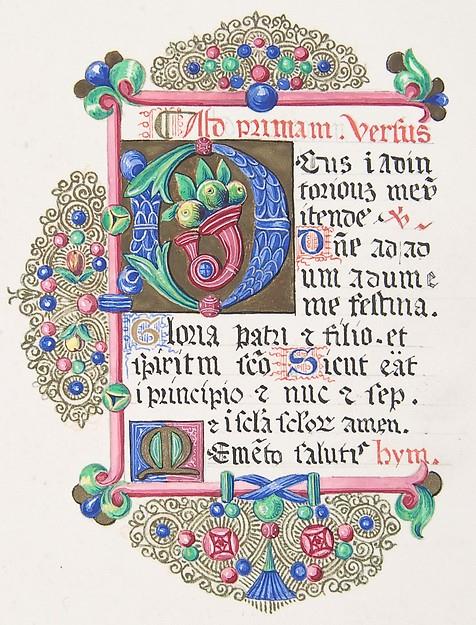 Ad primam. Versus
Deus i adiu
toriouz meū
itende. V
Dñe ad ad
ium adiume
me festina.
Gloria patri ⁊ filio. et
spiritm scō Sicut eāt
i principio ⁊ nūc ⁊ sep.
⁊ i scla sclor amen.
Memēto salutis hym.